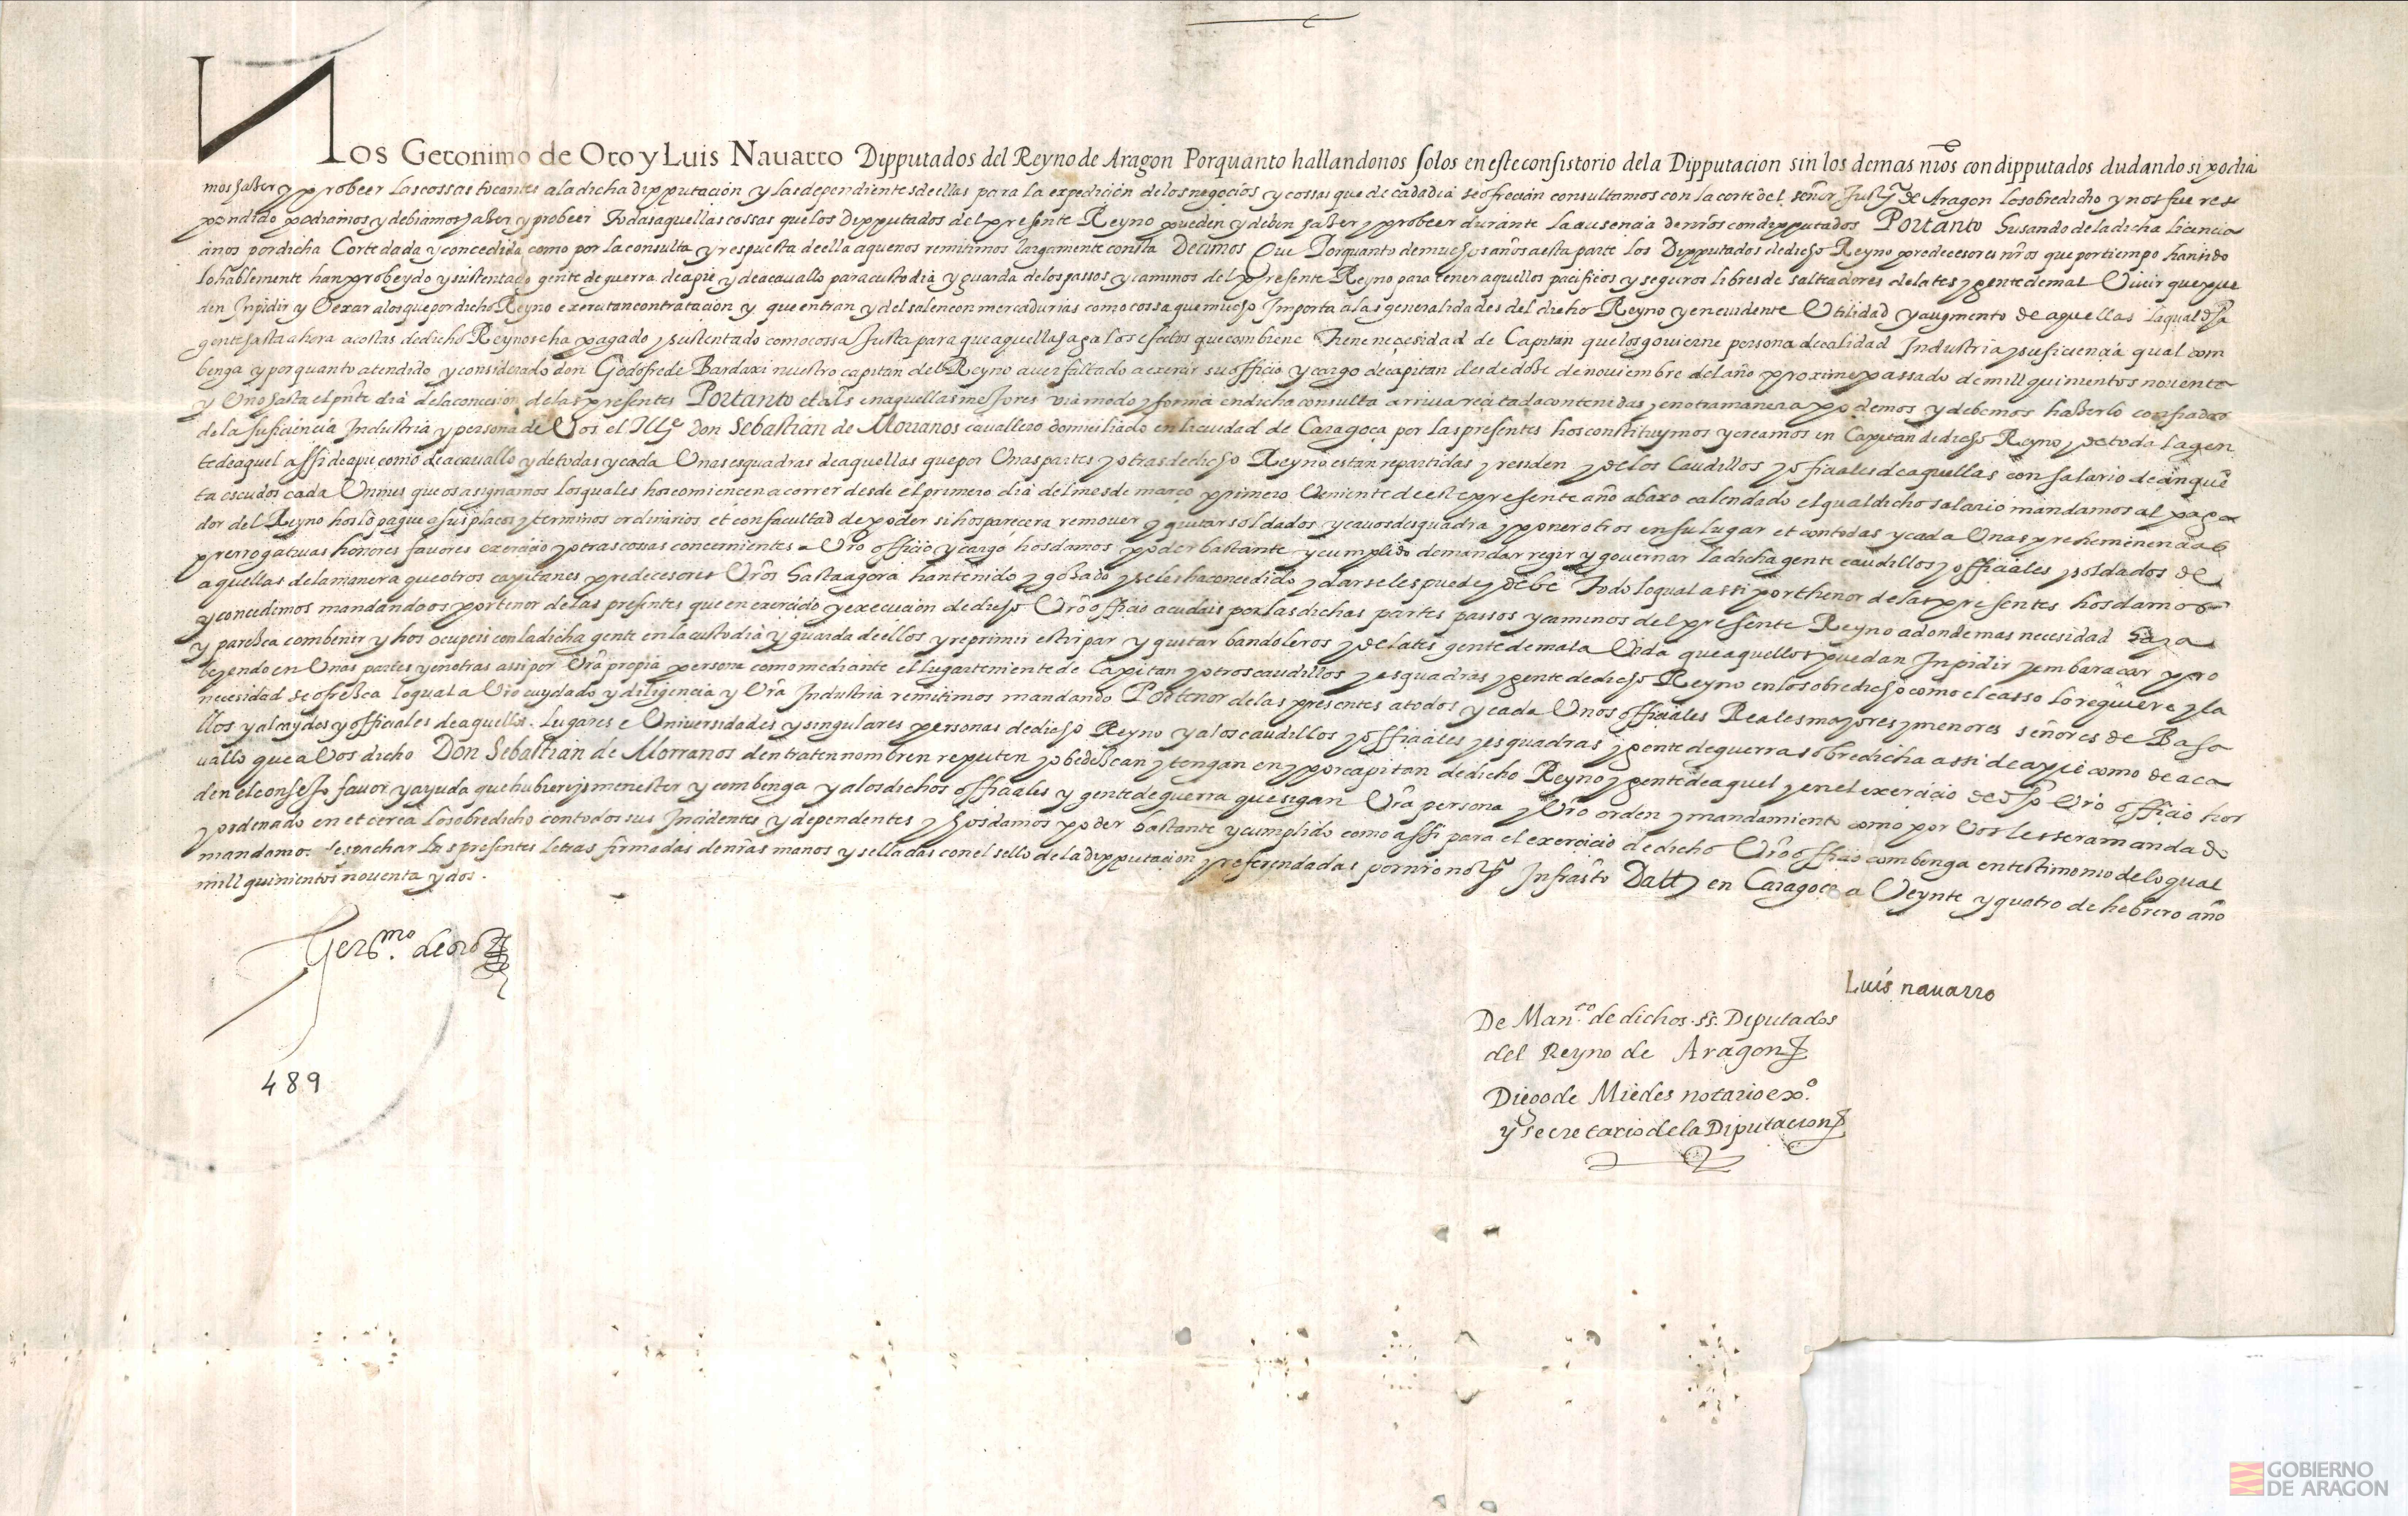 Nos Geronimo de Oro y Luis Nauarro Dipputados del Reyno de Aragon Porquanto hallandonos solos en este consistorio dela Dipputacion sin los demas nros condipputados dudando si podia
mos haZer y probeer las cossas tocantes a la dicha dipputacion y las dependientes de ellas para la expedicion de los negocios y cossas que de cada dia se ofrecian consultamos con la corte del señor Justª de Aragon lo sobredicho y nos fue res
pondido podiamos y debiamos haZer y probeer Todas aquellas cossas que los Dipputados del presente Reyno pueden y deben haZer y probeer durante la ausencia de nros condipputados Portanto Husando de la dicha licencia
anos por dicha Corte dada y concedida como por la consulta y respuesta de ella a que nos remitimos largamente consta Decimos Que Porquanto de muchos años a esta parte los Dipputados de dicho Reyno predecesores nros que por tiempo han sido
lohablemente han probeydo y sustentado gente de guerra de a pie y de a cauallo para custodia y guarda de los passos y caminos del presente Reyno para tener aquellos pacificos y seguros libres de salteadores delates y gente de mal Viuir que pue
den Inpidir y Vexar a los que por dicho Reyno exercitan contratacion y que entran y del salen con mercadurias como cossa que mucho Importa a las generalidades del dicho Reyno y en euidente Vtilidad y augmento de aquellas la qual dha
gente hasta ahora a costas de dicho Reyno se ha pagado y sustentado como cossa Justa para que aquella haga los efectos que combiene Tiene necesidad de Capitan que los gouierne persona de calidad Industria y suficiencia qual com
benga y por quanto atendido y considerado don Godofre de Bardaxi nuestro capitan del Reyno auer faltado a exercir su officio y cargo de capitan desde doZe de nouiembre del año proxime passado de mill quinientos nouenta
y Vno hasta el pnte dia de la concesion de las presentes Portanto et als en aquellas mejores via modo y forma en dicha consulta arriua recitada contenidas y en otra manera podemos y debemos haZerlo confiados
de la suficiencia Industria y persona de Vos el Illᵉ Don Sebastian de Mouanos cauallero domiciliado en la ciudad de Caragoça por las presentes hos constituymos y creamos en Capitan de dicho Reyno y de toda la gen
te de aquel assi de a pie como de a cauallo y de todas y cada Vnas esquadras de aquellas que por Vnas partes y otras de dicho Reyno estan repartidas y residen y de los Caudillos y officiales de aquellas con salario de cinquē
ta escudos cada Vn mes que os asignamos los quales hos comiencen a correr desde el primero dia del mes de março primero Veniente de este presente año abaxo calendado el qual dicho salario mandamos al paga
dor del Reyno hos lo pague a sus plaços y terminos ordinarios et con facultad de poder si hos parecera remouer y quitar soldados y cauos desquadra y poner otros en su lugar et con todas y cada Vnas preheminencias
prerrogatiuas honores fauores exercicio y otras cossas concernientes a Vro officio y cargo hos damos poder bastante y cumplido de mandar regir y gouernar la dicha gente caudillos y officiales y soldados de
aquellas de la manera que otros capitanes predecesores Vros hasta agora han tenido y goZado y se les ha concedido y darseles puede y debe Todo lo qual assi por thenor de las presentes hos damos
y concedimos mandandoos por tenor de las presentes que en exercicio y execucion de dicho Vro officio acudais por las dichas partes passos y caminos del presente Reyno a donde mas necesidad haya
y pareZca combenir y hos ocupeis con la dicha gente en la custodia y guarda de ellos y reprimir estirpar y quitar bandoleros y delates gente de mala Vida que aquellos puedan Inpidir y embaraçar pro
beyendo en Vnas partes y en otras assi por Vra propia persona como mediante el lugarteniente de Capitan y otros caudillos y esquadras y gente de dicho Reyno en lo sobredicho como el casso lo requiere y la
necesidad se ofreZca lo qual a Vro cuydado y diligencia y Vra Industria remitimos mandando Por tenor de las presentes a todos y cada Vnos officiales Reales mayores y menores señores de Basa
llos y alcaydos y officiales de aquellos Lugares e Vniuersidades y singulares personas de dicho Reyno y a los caudillos y officiales y esquadras y gente de guerra sobredicha assi de a pie como de a ca
uallo que a Vos dicho Don Sebastian de Morranos den traten nombren reputen y obedeZcan y tengan en y por capitan de dicho Reyno y gente de aquel y en el exercicio de dho Vro officio hos
den el consejo fauor y ayuda que hubiereys menester y combenga y a los dichos officiales y gente de guerra que sigan Vra persona y Vro orden y mandamiento como por Vos les sera mandado
y ordenado en et cerca lo sobredicho con todos sus Incidentes y dependientes y hos damos poder bastante y cumplido como assi para el exercicio de dicho Vro officio combenga en testimonio de lo qual
mandamos despachar las presentes letras firmadas de nras manos y selladas con el sello de la dipputacion y referendadas por nro notº Infrascto Datt en Caragoça a Veynte y quatro de hebrero año
mill quinientos nouenta y dos.
Germo. de oro
Luis nauarro
De Manto. de dichos ss. Diputados
del Reyno de Aragon
Diego de Miedes notario exº.
y secretario de la Diputacion
489
GOBIERNO
DE ARAGON